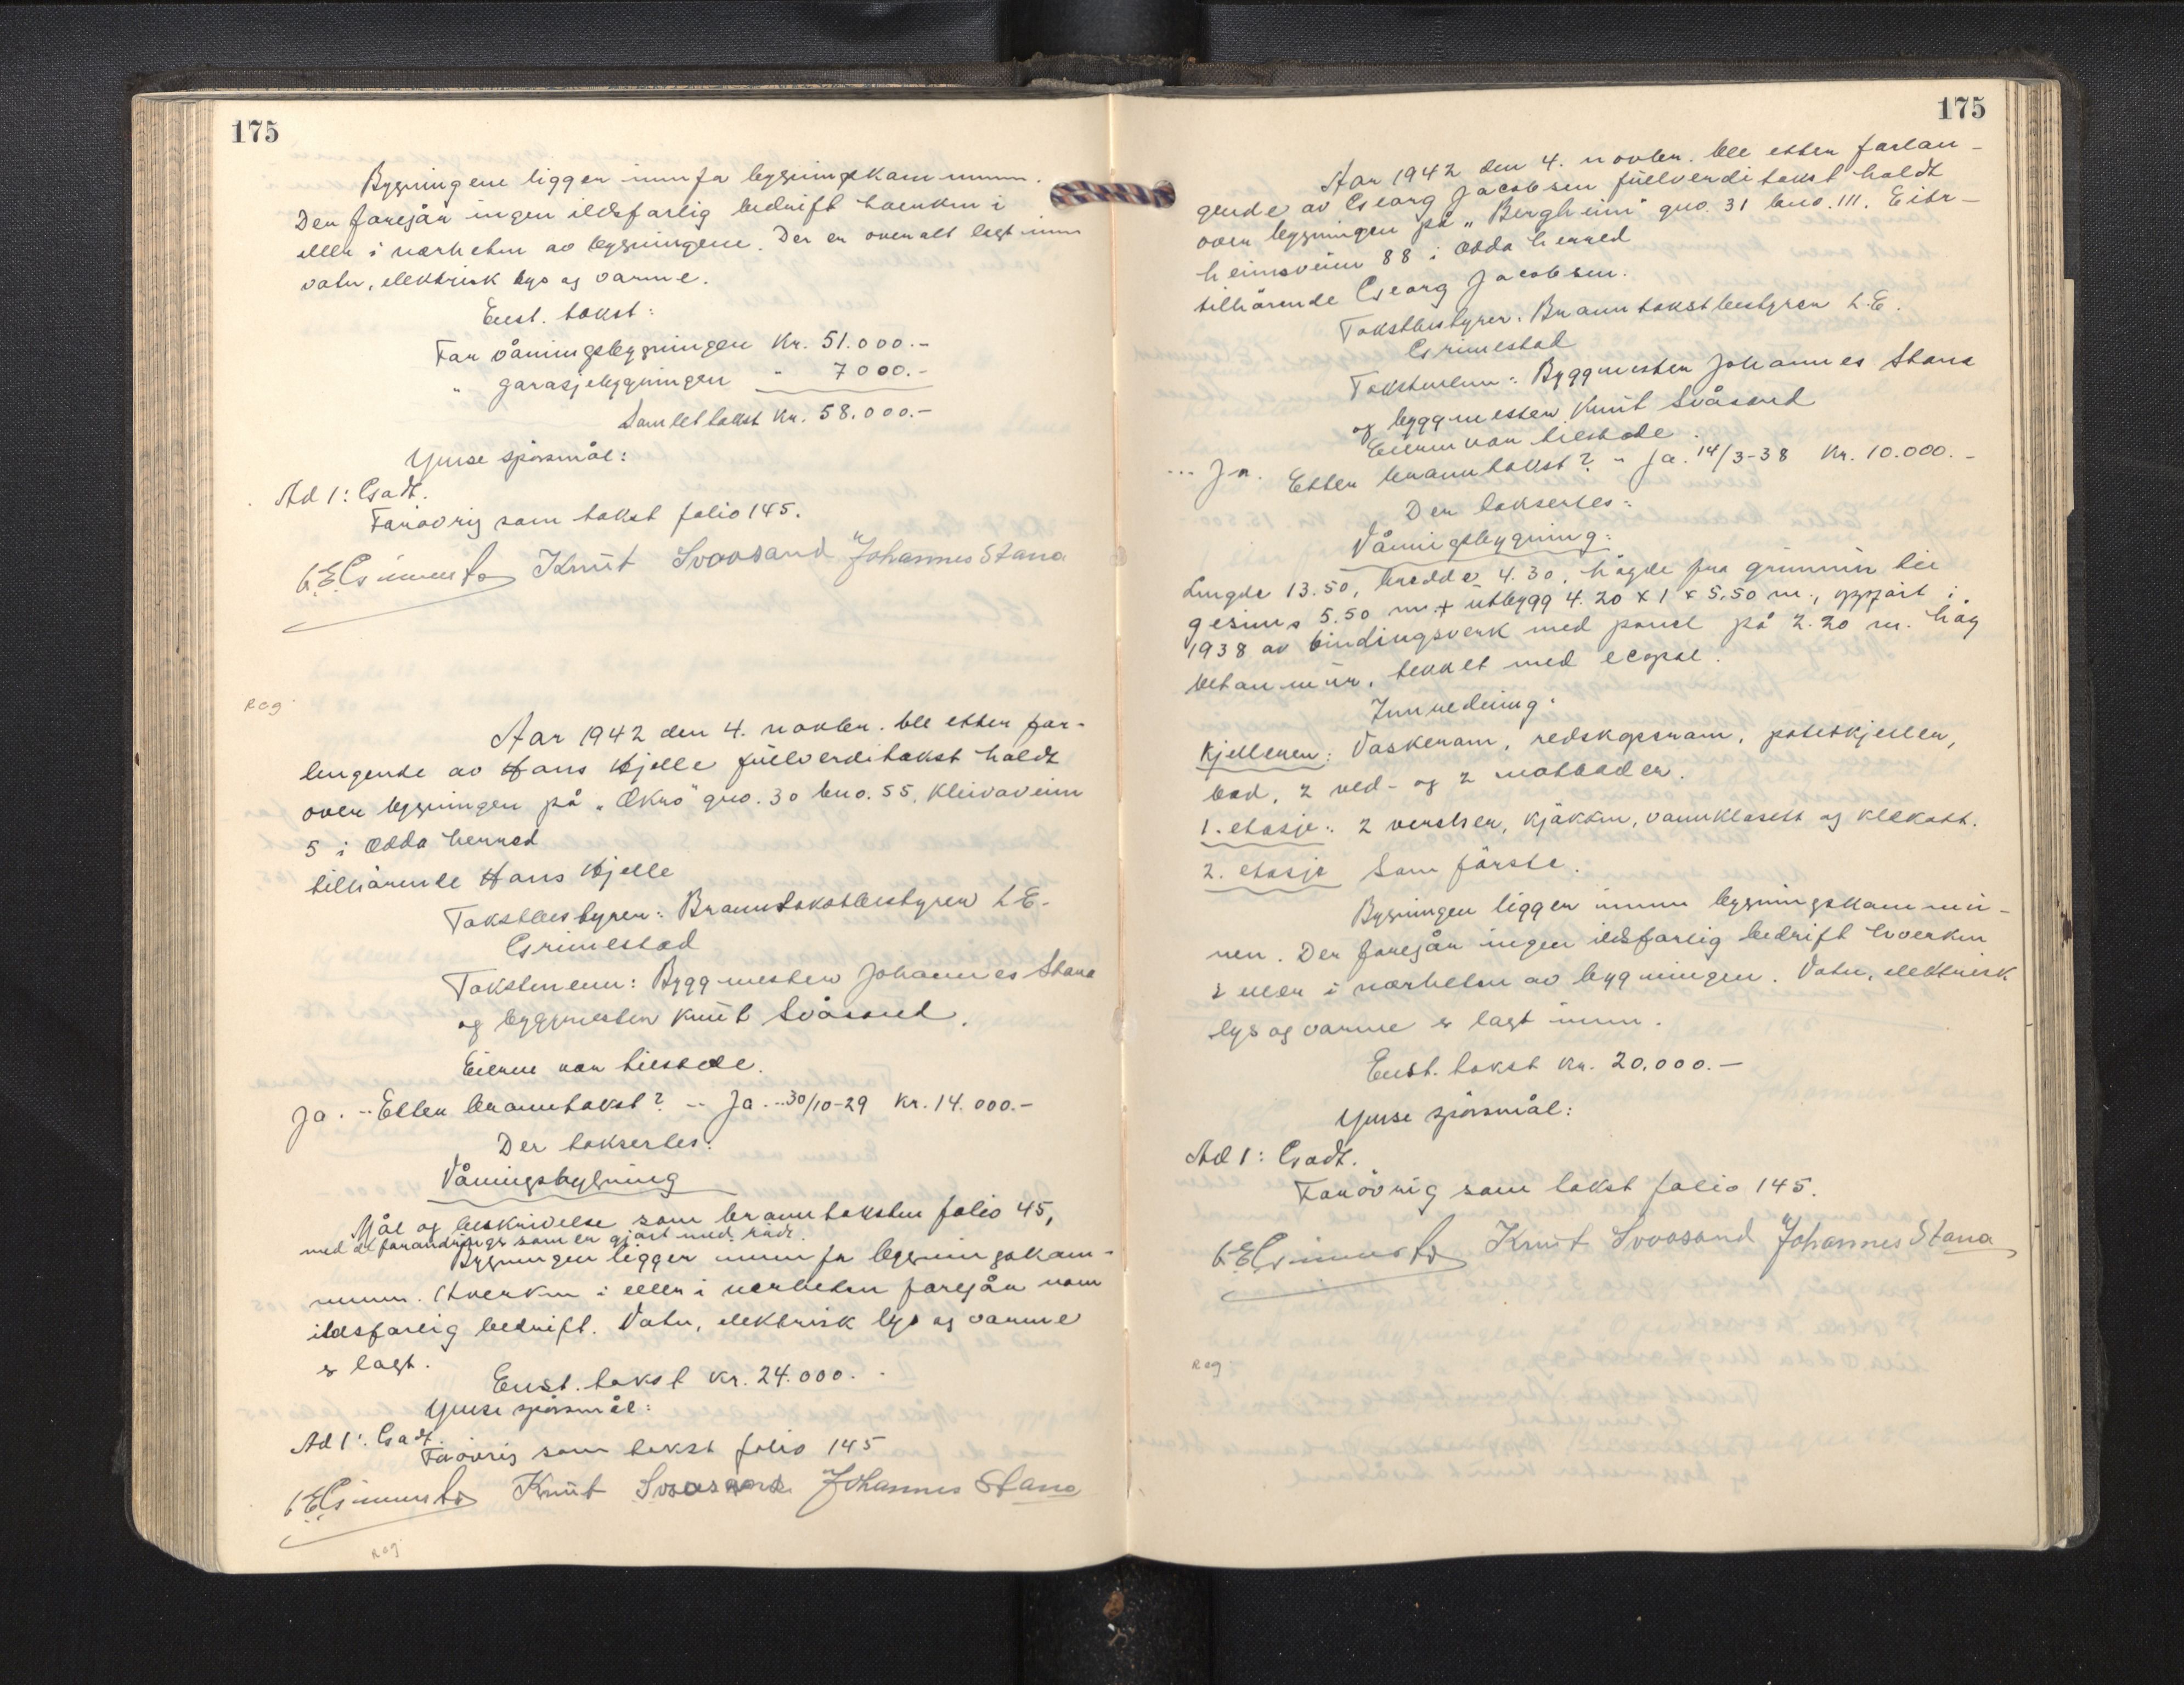 175
Bygningene ligger innafor bygningskommunen.
Der foregår ingen ildsfarlig bedrift hverken i
eller i nærheten av bygningene. Der er overalt lagt inn
vatn, elektrisk lys og varme.
Enst. takst:
For våningsbygningen Kr. 51.000.-
" garasjebygningen " 7000.-
Samlet takst Kr. 58.000.-
Ymse spörsmål:
Ad 1: Godt.
Forövrig som takst folio 145.
L.E. Grimestad Knut Svaasand Johannes Stana
Reg
Aar 1942 den 4. novbr. ble etter for-
langende av Hans Hjelle fullverditakst holdt
over bygningen på "Økro" gno. 30 bno. 55, Kleivaveien
5 i Odda herred
tilhörende Hans Hjelle
Takstbestyrer: Branntakstbestyrer L.E.
Grimestad
Takstmenn: Byggmester Johannes Stana
og byggmester Knut Svåsand.
Eieren var tilstede.
Ja. -- Etter branntakst? -- Ja. -- 30/10-29 Kr. 14.000.-
Der takserles:
Våningsbygning
Mål og beskrivelse som branntaksten folio 45,
med de forandringer som er gjort med rådt.
Bygningen ligger innafor bygningskom-
munen. Hverken i eller i nærheten foregår noen
ildsfarlig bedrift. Vatn, elektrisk lys og varme
er lagt.
Enst. takst Kr. 24.000.-
Ymse spörsmål:
Ad 1: Godt.
Forövrig som takst folio 145
L.E. Grimestad Knut Svaasand Johannes Stana
Reg
175
Aar 1942 den 4. novbr. ble etter forlan-
gende av Georg Jacobsen fullverditakst holdt
over bygningen på "Bergheim" gno. 31 bno. 111. Eitr-
heimsveien 88 i Odda herred
tilhörende Georg Jacobsen.
Takstbestyrer: Branntakstbestyrer L.E.
Grimestad
Takstmenn: Byggmester Johannes Stana
og byggmester Knut Svåsand
Eieren var tilstede.
... Ja. Etter branntakst? - Ja. 14/3-38 Kr. 10.000.-
Der takserles:
Våningsbygning:
Lengde 13.50, bredde 4.30, högde fra grunnen til
gesims 5.50 m. + utbygg 4.20 x 1 x 5.50 m., oppfört i
1938 av bindingsverk med panel på 2.20 m. hög
betonmur, tekket med ecopal.
Innredning:
Kjelleren: Vaskerom, redskapsrom, potetkjeller,
bad, 2 ved- og 2 matboder.
1. etasje: 2 verelser, kjökken, vannklosett og klekott.
2. etasje Som förste.
Bygningen ligger innen bygningskommu-
nen. Der foregår ingen ildsfarlig bedrift hverken
i eller i nærheten av bygningen. Vatn, elektrisk
lys og varme er lagt inn.
Enst. takst Kr. 20.000.-
Ymse spörsmål:
Ad 1: Godt.
Forövrig som takst folio 145.
L.E. Grimestad Knut Svaasand Johannes Stana
Reg